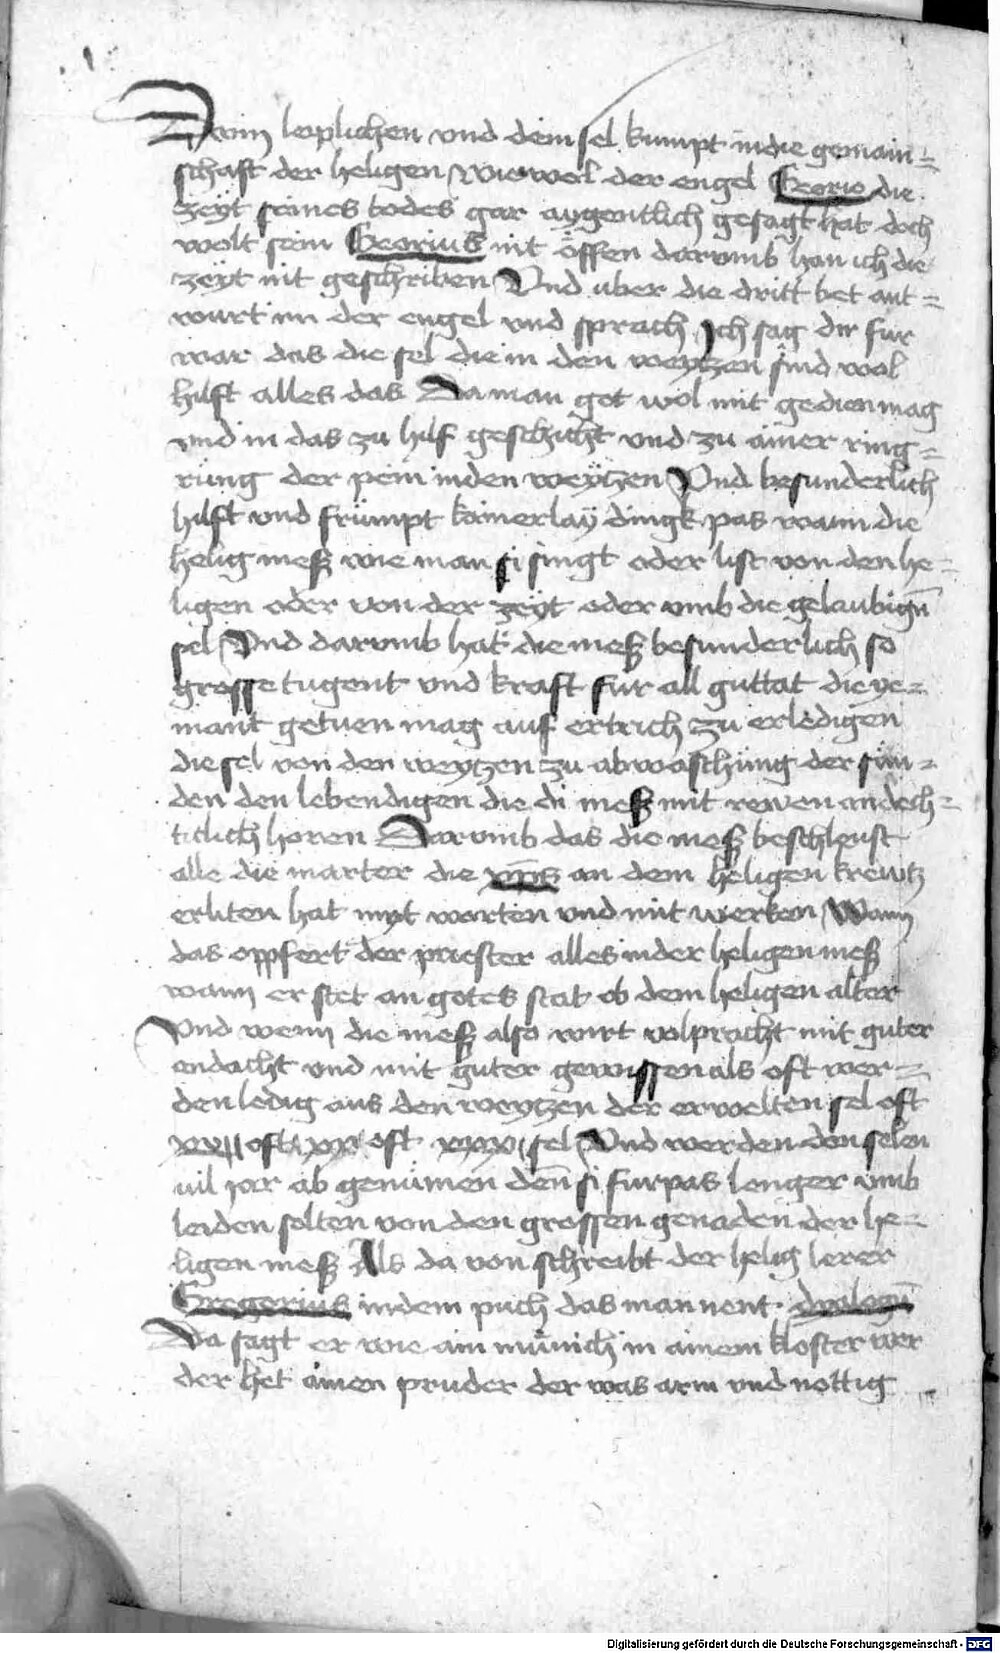 Dann leiplichen vnd dein sel kumpt in die gemain=
schaft der heligen Wiewol der engel Georio die
zeyt seines todes gar aygentlich gesagt hat doch
wolt sein Georius nit öffen darvmb han ich die
zeyt nit geschriben Vnd uber die dritt bet ant=
wurt im der engel vnd sprach Ich sag dir fur
war das die sel die in den weytzen sind wol
hilft alles das Da man got wol mit gedien mag
vnd in das zu hilf geschicht vnd zu ainer ring=
rüng der pein in den weytzen Vnd besunderlich
hilft vnd frümpt kainerlay dingk pas wann die
helig meß wie man si singt oder list von den he=
ligen oder von der zeyt oder vmb die gelaubign̄
sel Vnd darvmb hat die meß besunderlich so
grosse tugent vnd kraft fur all guttat die ye=
mant getuen mag auf ertrich zu erledigen
die sel von den weytzen zu abwaschüng der sün=
den den lebendigen die di meß mit rewen andech=
titlich horen Darvmb das die meß beschleust
alle die marter die xp̄s an dem heligen krewtz
erliten hat myt worten vnd mit werken Wann
das oppfert der priester alles in der heligen meß
wann er stet an gotes stat ob dem heligen alter
Vnd wenn die meß also wirt volpracht mit guter
andacht vnd mit guter gewissen als oft wer=
den ledig aus den weytzen der erwelten sel oft
oft oft sel Vnd werden den selen
uil jar ab genümen den̄ si furpas lenger vmb
leiden solten von den grossen genaden der he=
ligen meß Als da von schreibt der helig lerer
Gregerius in dem puch das man nent dyalogū
Da sagt er wie ain münich in ainem kloster wer
der het ainen pruder der was arm vnd nottig
Digitalisierung gefördert durch die Deutsche Forschungsgemeinschaft - DFG